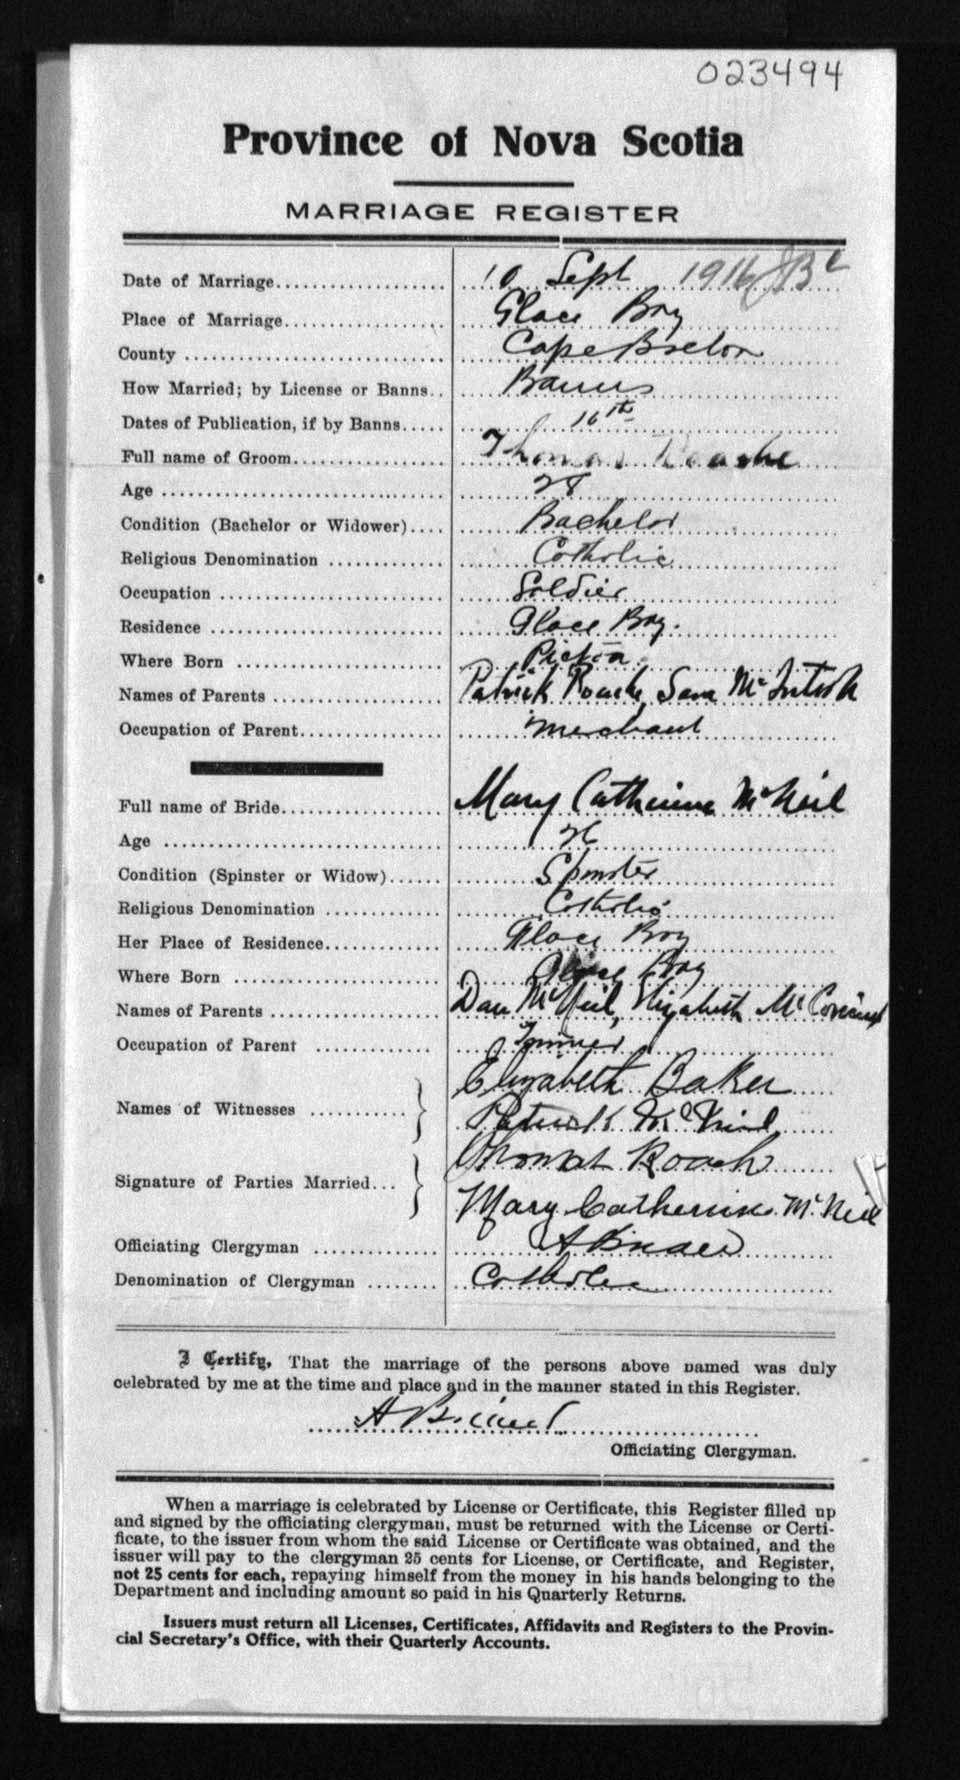 023494
Province of Nova Scotia
MARRIAGE REGISTER
Date of Marriage 10 Sept 1916
Place of Marriage Glace Bay
County Cape Breton
How Married; by License or Banns Banns
Dates of Publication, if by Banns 16th
Full name of Groom Thomas Roache
Age 28
Condition (Bachelor or Widower) Bachelor
Religious Denomination Catholic
Occupation Soldier
Residence Glace Bay.
Where Born Pictou
Names of Parents Patrick Roache, Sara McIntosh
Occupation of Parent Merchant
Full name of Bride Mary Catherine McNeil
Age 26
Condition (Spinster or Widow) Spinster
Religious Denomination Catholic
Her Place of Residence Glace Bay
Where Born Glace Bay
Names of Parents Dan McNeil, Elizabeth Mc
Occupation of Parent
Names of Witnesses Elizabeth Baker
Patrick McNeil
Signature of Parties Married Thomas Roach
Mary Catherine McNeil
Officiating Clergyman A
Denomination of Clergyman Catholic
I Certify, That the marriage of the persons above named was duly
celebrated by me at the time and place and in the manner stated in this Register.
A
Officiating Clergyman.
When a marriage is celebrated by License or Certificate, this Register filled up
and signed by the officiating clergyman, must be returned with the License or Certi-
ficate, to the issuer from whom the said License or Certificate was obtained, and the
issuer will pay to the clergyman 25 cents for License, or Certificate, and Register,
not 25 cents for each, repaying himself from the money in his hands belonging to the
Department and including amount so paid in his Quarterly Returns.
Issuers must return all Licenses, Certificates, Affidavits and Registers to the Provin-
cial Secretary's Office, with their Quarterly Accounts.